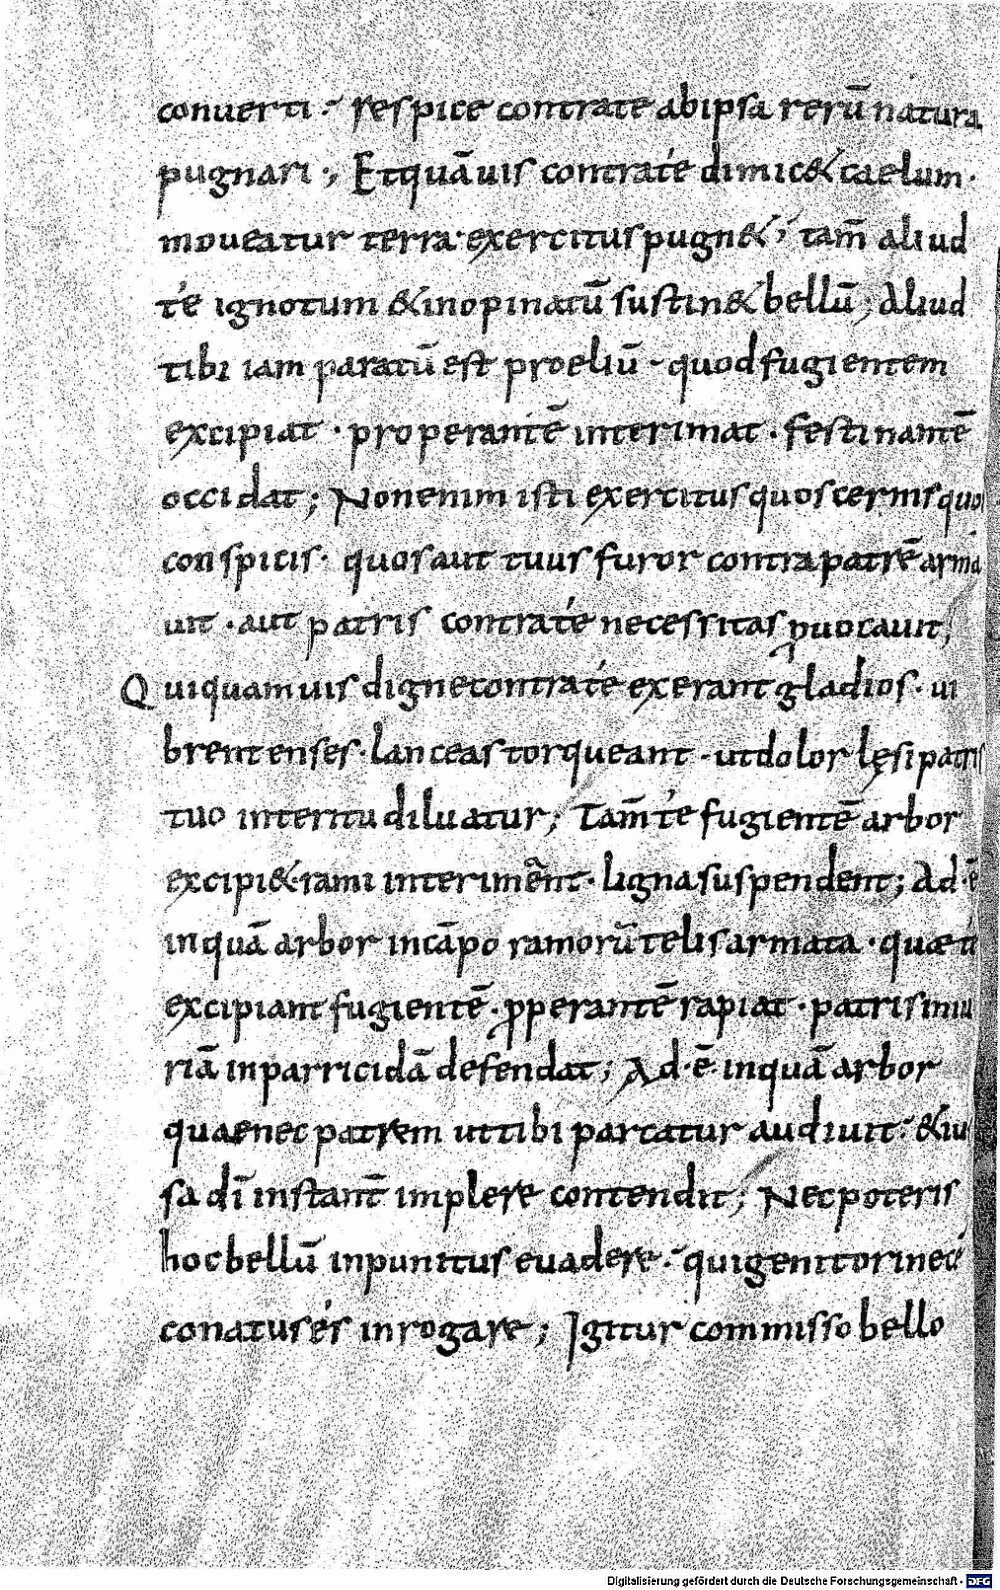 conuerti · respice contra te ab ipsa rerū natura
pugnari ·, Et quāuis contra te dimic& caelum ·
moueatur terra · exercitus pugn& ; tam̄ aliud
té ignotum & inopinatū sustin& bellū ; Aliud
tibi iam paratū est proeliū · quod fugientem
excipiat · properantē interimat · festinantē
occidat ; Non enim isti exercitus quos cernis quos
conspicis · quos aut tuus furor contra patrē arma
uit · aut patris contra té necessitas ꝓuocauit,
Qui quamuis digne contra té exerant gladios · ui
brent enses · lanceas torqueant · ut dolor lęsi patris
tuo interitu diluatur ; Tam̄ té fugientē arbor
excipi& · rami interimēnt · ligna suspendent ; Ad · ē
inquā arbor in cāpo ramorū telis armata · quae te
excipiant fugientē · ꝓperantē rapiat · patris iniu
riā in parricidā defendat ; Ad · ē inquā arbor
quae nec patrem ut tibi parcatur audiuit · & iu
sa dī instant̄ implere contendit ; Nec poteris
hoc bellū inpunitus euadere · qui genitori necé
conatus és inrogare ; Igitur commisso bello
Digitalisierung gefördert durch die Deutsche Forschungsgemeinschaft - DFG